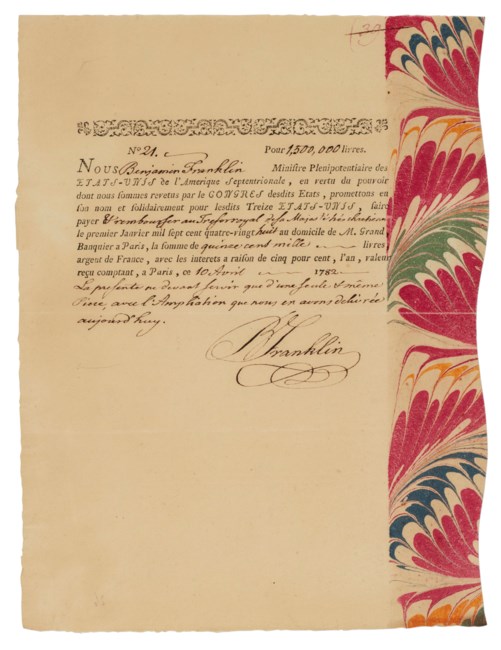 Nº 21. Pour 1,500,000 livres.
NOUS Benjamin Franklin Ministre Plenipotentiaire des
ETATS-UNIS de l'Amerique Septentrionale, en vertu du pouvoir
dont nous sommes revetus par le CONGRES desdits Etats, promettons en
son nom et solidairement pour lesdits Treize ETATS-UNIS, faire
payer & rembourser au Tresor royal de sa Majesté très chrétienne
le premier Janvier mil sept cent quatre-vingt huit au domicile de M. Grand,
Banquier a Paris, la somme de quinze cent mille livres
argent de France, avec les interets a raison de cinq pour cent, l'an, valeur
reçu comptant, a Paris, ce 10 Avril 1782
La presente ne devant servir que d'une seule & même
Piece, avec l'Ampliation que nous en avons delivrée
aujourd'huy.
B Franklin